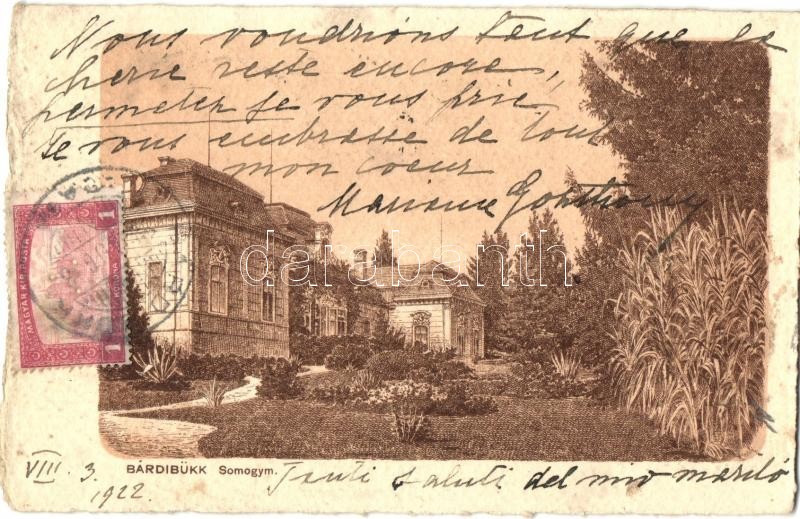 Nous voudrions tant que la
cherie reste encore,
permetez je vous prie!
Je vous embrasse de tout
mon coeur
Marianne
MAGYAR KIR. POSTA
1
KORONA
1
darabanth
BÁRDIBÜKK Somogym.
VIII. 3.
1922.
Tanti saluti del mio marito